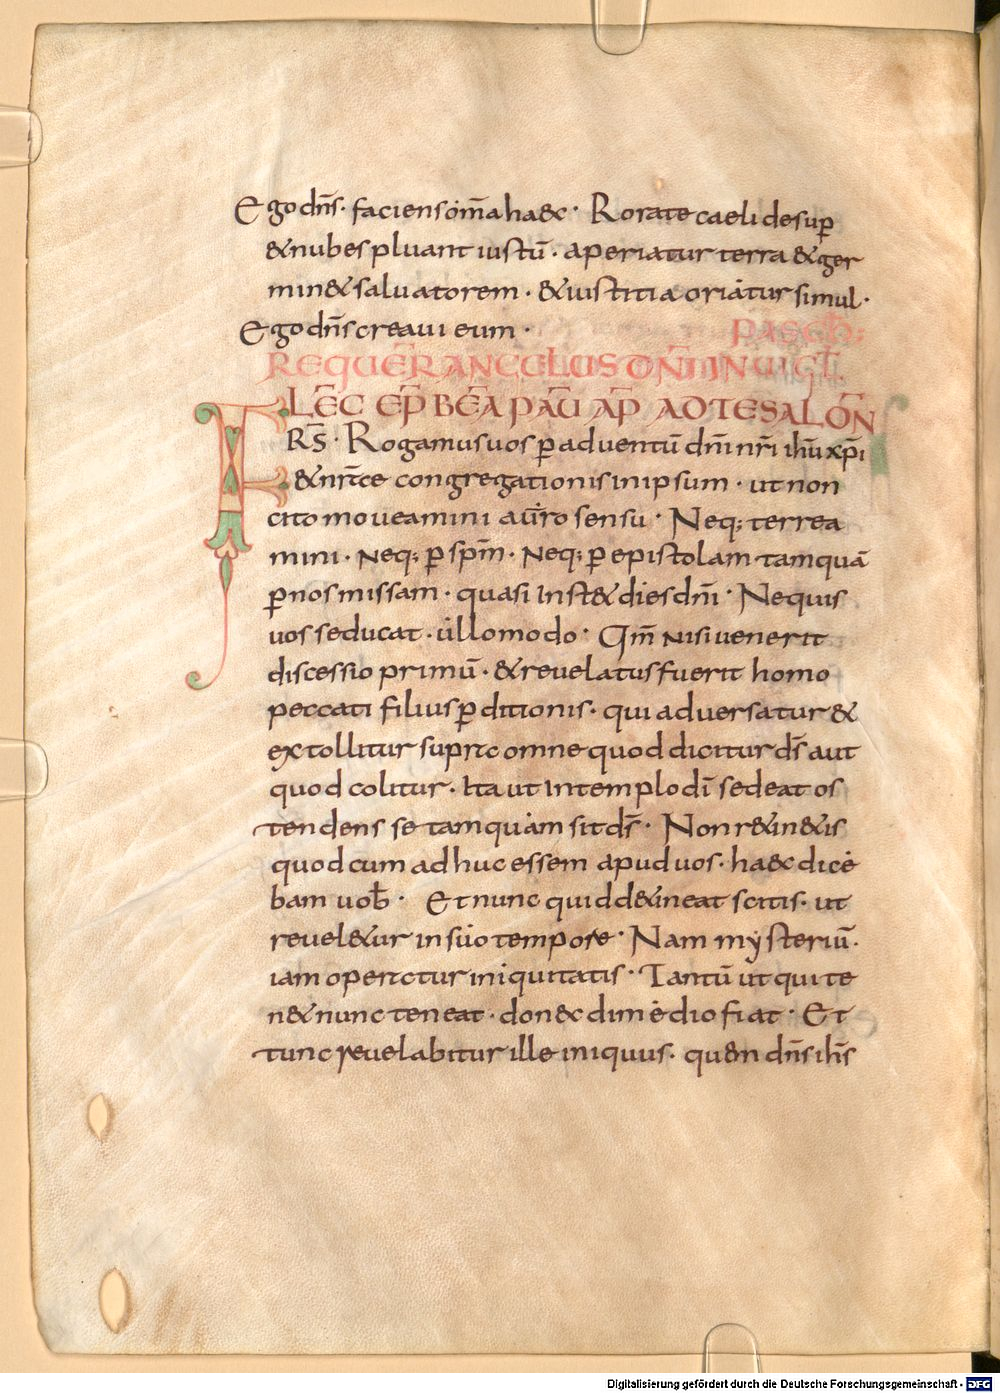 Ego dn̄s· faciens om̄a haec· Rorate caeli desuꝑ
& nubes pluant iustū· aperiatur terra & ger
min& saluatorem· & iustitia oriatur simul·
Ego dn̄s creaui eum·
REQUĒR ANGELUS DN̄I IN UIGL̄
LĒC EP̄ BĒA PAŪ AP̄ AD TESALŌN
FRS̄· Rogamus uos ꝑ aduentū dn̄i nr̄i ih̄u xp̄i
& nr̄ce congregationis in ipsum· ut non
cito moueamini a ur̄o sensu· Neq; terrea
mini· Neq; ꝑ sp̄m· Neq; ꝑ epistolam tamquā
ꝑ nos missam· quasi inst& dies dn̄i· Ne quis
uos seducat· ullo modo· Qm̄ nisi uenerit
discessio primū· & reuelatus fuerit homo
peccati filius ꝑditionis· qui aduersatur &
extollitur supra omne quod dicitur ds̄ aut
quod colitur· Ita ut in templo dī sedeat os
tendens se tamquam sit ds̄· Non r&in&is
quod cum adhuc essem apud uos· haec dice
bam uob̄· Et nunc quid d&ineat scitis· ut
reuel&ur in suo tempore· Nam mẏsteriū·
iam operatur iniquitatis· Tantū ut qui te
n& nunc teneat· donec dimedio fiat· Et
tunc reuelabitur ille iniquus· quem dn̄s ih̄s
Digitalisierung gefördert durch die Deutsche Forschungsgemeinschaft - DFG